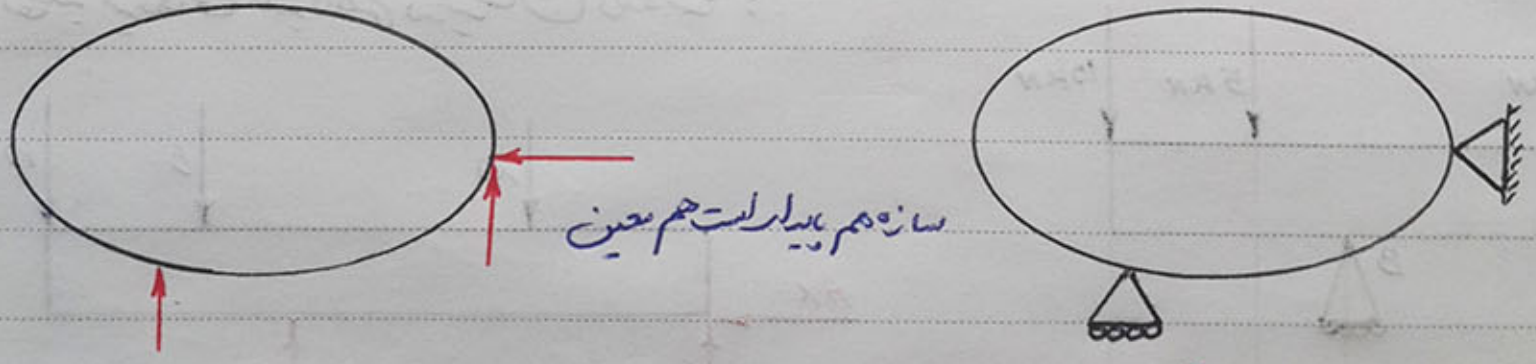 سازه هم پایدار است هم معین